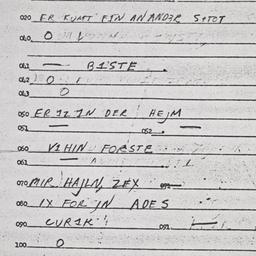 020 ER KUMT EJN AN ANDƷR STOT
010 O
011 — BISTE
012 O 1
013 O
050 ER IZ IN DER HEJM
051 — 052 —
060 VIHIN FORSTE
061 —
070 MIR HAJLN, ZEX 071 —
080 IX FOR JN ADES
090 CURIK 091 —
100 O